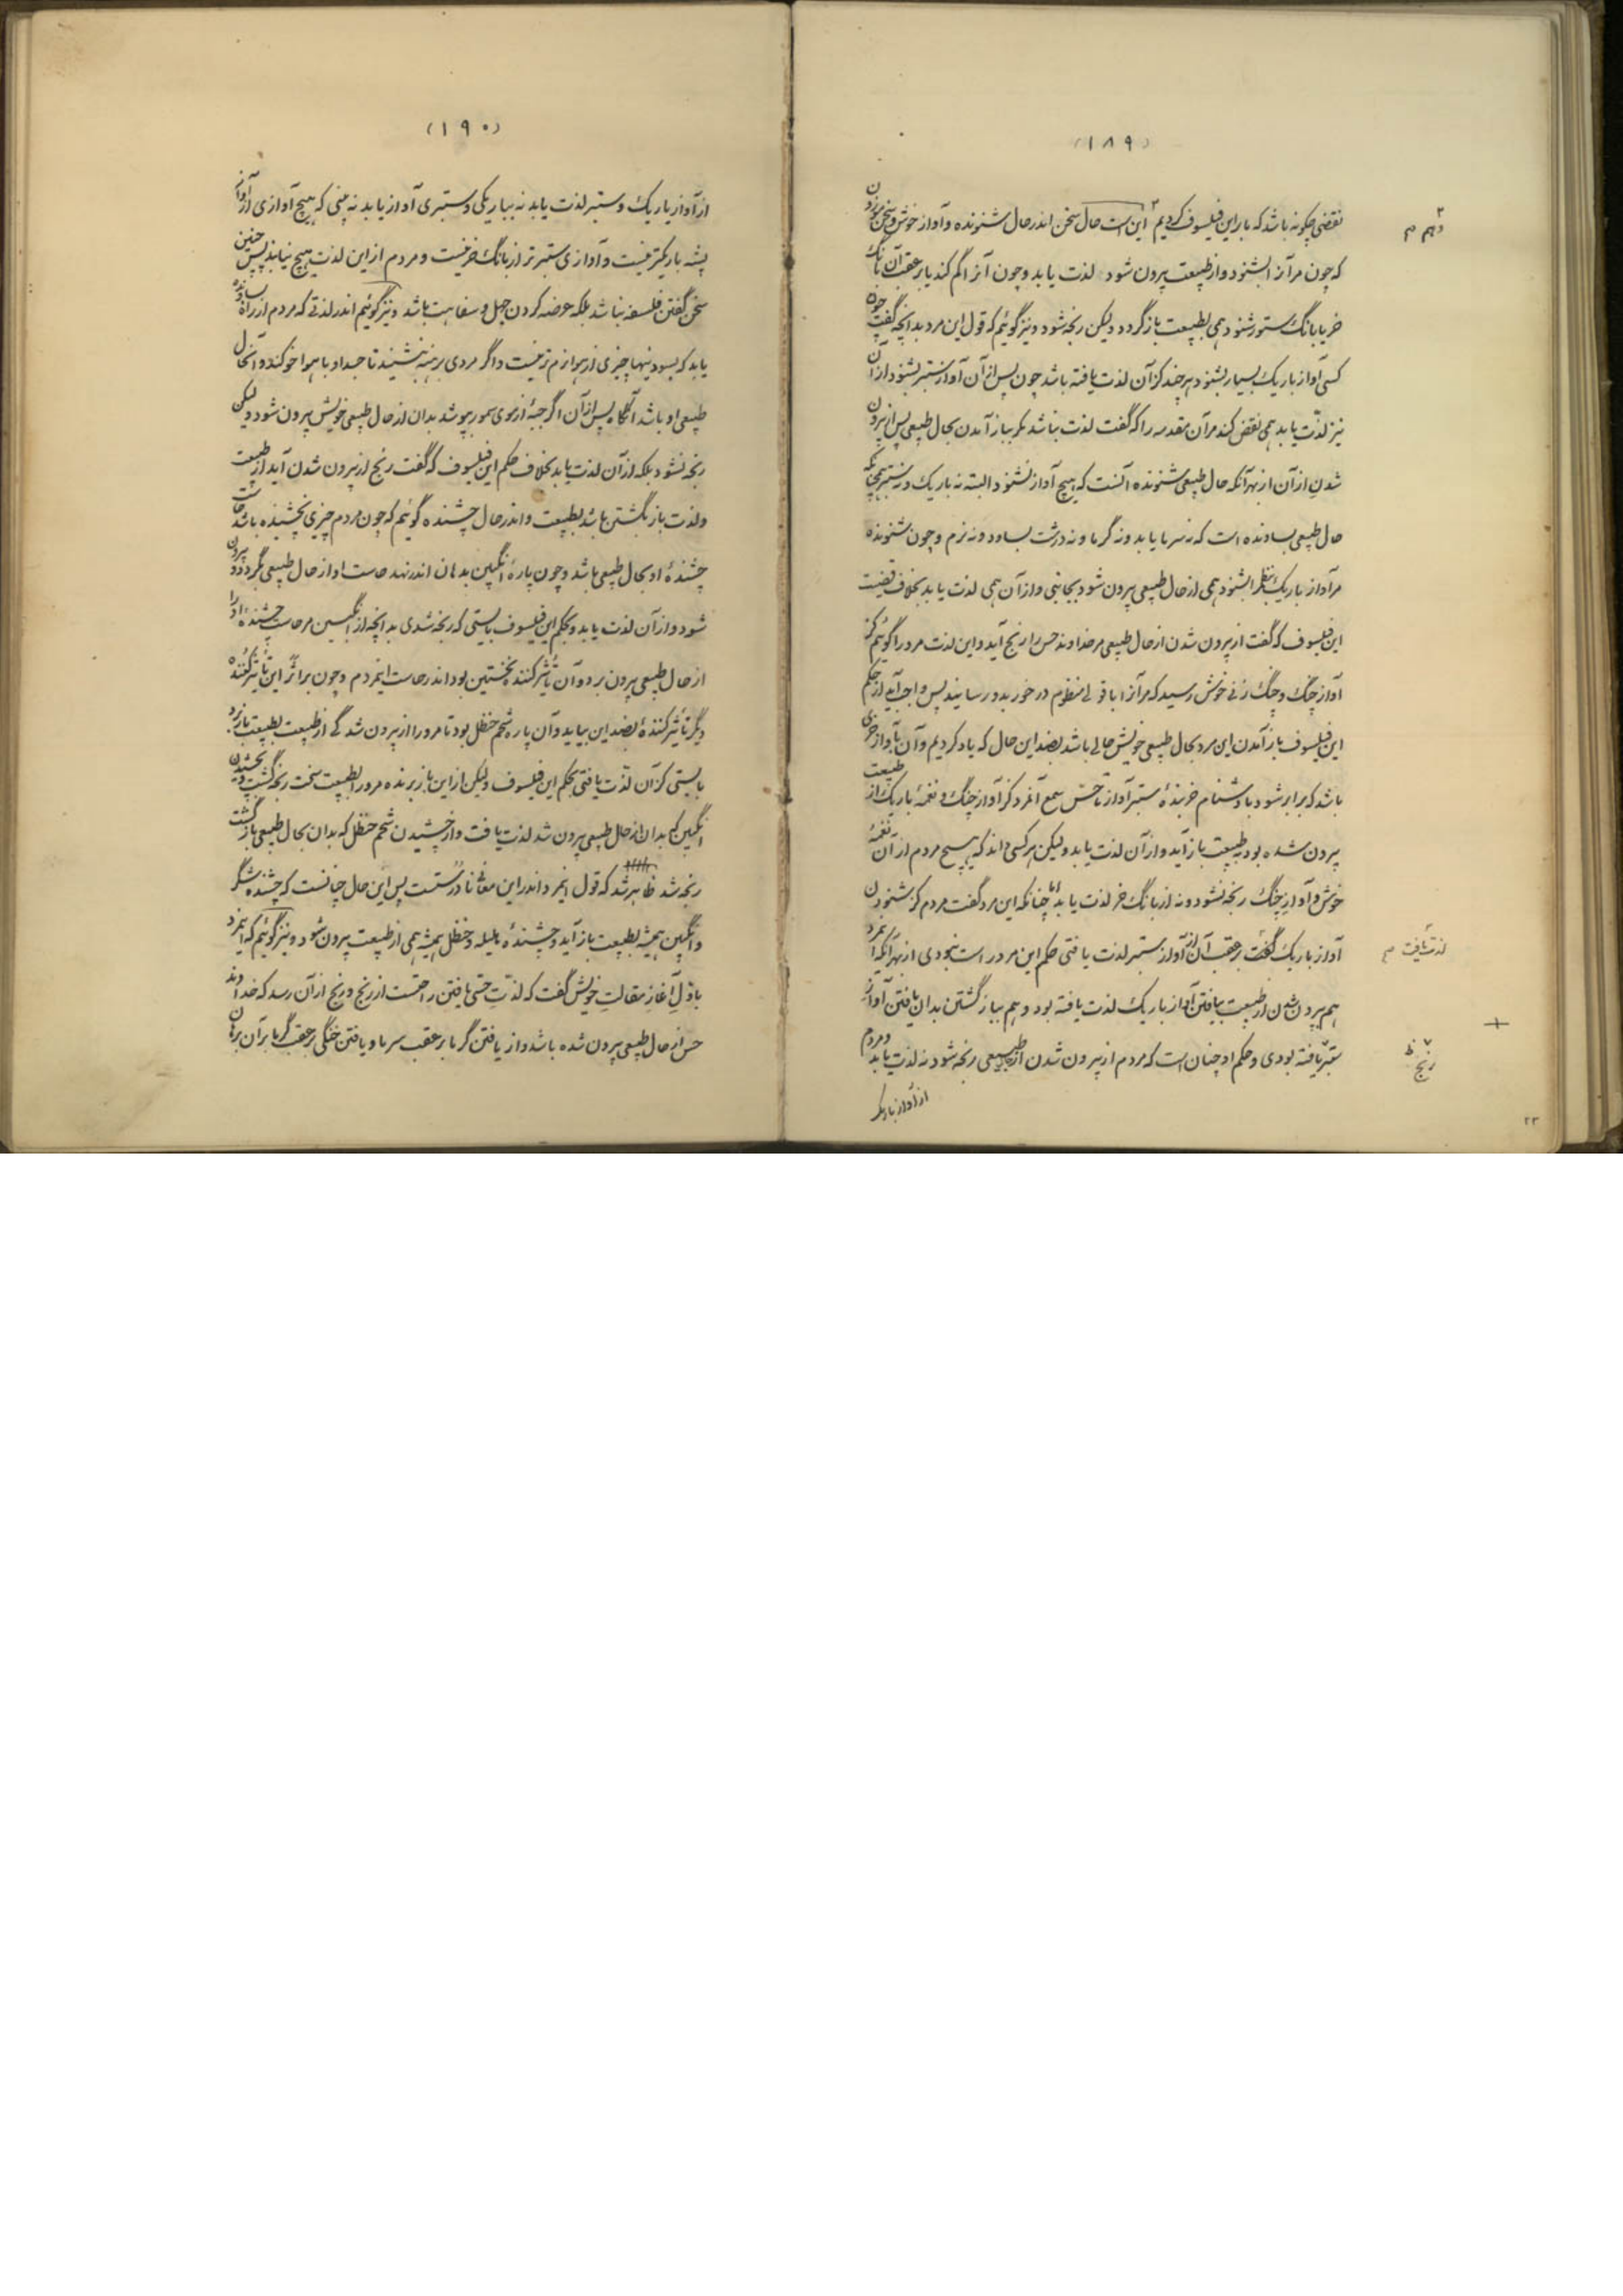 (۱۸۹)
نقضی چگونه باشد که بر این فیلسوف کردیم این است حال سخن اندر حال شنونده و آواز خوش و سخن موزون
که چون مر آنرا بشنود و از طبیعت بیرون شود لذت یابد و چون آنرا گم کند یا بر عقب آن بانگ
خر یا بانگ ستور شنود همی بطبیعت باز گردد ولیکن رنجه شود و نیز گوئیم که قول این مرد بدانچه گفت چون
کسی آواز باریک بسیار بشنود هر چند کز آن لذت یافته باشد چون پس از آن آواز ستبر بشنود از آن
نیز لذت یابد همی نقض کند مر آن مقدمه را که گفت لذت نباشد مگر بباز آمدن بحال طبیعی پس از بیرون
شدن از آن از بهر آنکه حال طبیعی شنونده آنست که هیچ آواز نشنود البته نه باریک و نه ستبر همچنانکه
حال طبیعی بساونده است که نه سرما یابد و نه گرما و نه درشت بساود و نه نرم و چون شنونده
مر آواز باریک بنظم را بشنود همی از حال طبیعی بیرون شود بجانبی و از آن همی لذت یابد بخلاف قضیت
این فیلسوف که گفت از بیرون شدن از حال طبیعی مر خداوند حس را رنج آید و این لذت مرورا گوئیم کز
آواز چنگ و چنگ زنی خوش رسید که مر آنرا با قولی منظوم در خور بدو رسانید پس واجب آید از حکم
این فیلسوف باز آمدن این مرد بحال طبیعی خویش حالی باشد بضد این حال که یاد کردیم و آن بآواز خری
باشد که برابر شود با دشنام خربنده ستبر آواز تا حس سمع آنمرد کز آواز چنگ و نغمهٔ باریک از طبیعت
بیرون شده بود بطبیعت باز آید و از آن لذت یابد ولیکن هر کسی داند که هیچ مردم از آن نغمهٔ
خوش و آواز چنگ رنجه نشود و نه از بانگ خر لذت یابد اما چنانکه این مرد گفت مردم کز شنودن
آواز باریک گفت بر عقب آن از آواز ستبر لذت یافتی حکم این مرد راست نبودی از بهر آنکه اینمرد
هم بیرون شدن از طبیعت بیافتن آواز باریک لذت یافته بود و هم بباز گشتن بدان یافتن آواز
ستبر یافته بودی و حکم او چنان است که مردم از بیرون شدن از حال طبیعی رنجه شود نه لذت یابد و مردم
از آواز باریک
لذت یافت م
رنج ظ
۲۳
(۱۹۰)
از آواز باریک و ستبر لذت یابد نه بباریکی و ستبری آواز یابد نه بینی که هیچ آوازی از آواز
پشه باریکتر نیست و آوازی ستبرتر از بانگ خر نیست و مردم از این لذت هیچ نیابد پس چنین
سخن گفتن فلسفه نباشد بلکه عرضه کردن جهل و سفاهت باشد و نیز گوئیم اندر لذتی که مردم از راه بساونده
یابد که بسودنیها چیزی از هوا نرم‌تر نیست و اگر مردی برهنه بنشیند تا جسد او با هوا خو کند و آنحال
طبیعی او باشد آنگاه پس از آن اگر جبهٔ از موی سمور بپوشد بدان از حال طبیعی خویش بیرون شود ولیکن
رنجه نشود بلکه از آن لذت یابد بخلاف حکم این فیلسوف که گفت رنج از بیرون شدن آید از طبیعت
ولذت باز گشتن باشد بطبیعت و اندر حال چشنده گوئیم که چون مردم چیزی نچشیده باشد حاست
چشندهٔ او بحال طبیعی باشد و چون پارهٔ انگبین بدهان اندر نهد حاست او از حال طبیعی بگردد و بیرون
شود و از آن لذت یابد و بحکم این فیلسوف بایستی که رنجه شدی بدانچه از انگبین مر حاست چشندهٔ او را
از حال طبیعی بیرون برد و آن تأثیر کنندهٔ نخستین بود اندر حاست اینمردم و چون بر اثر این تأثیر کننده
دیگر تأثیر کنندهٔ بضد این بیاید و آن پاره شحم حنظل بود تا مرورا از بیرون شدگی از طبیعت بطبیعت باز برد
بایستی کز آن لذت یافتی بحکم این فیلسوف ولیکن از این باز برنده مرورا بطبیعت سخت رنجه گشت و بچشیدن
انگبین که بدان از حال طبیعی بیرون شد لذت یافت و از چشیدن شحم حنظل که بدان بحال طبیعی باز گشت
رنجه شد ظاهر شد که قول اینمرد اندر این معنا نادرستست پس این حال چنانست که چشنده شکر
و انگبین همیشه بطبیعت باز آید و چشندهٔ هلیله و حنظل همیشه همی از طبیعت بیرون شود و نیز گوئیم که اینمرد
باول آغاز مقالت خویش گفت که لذت حسی یافتن راحتست از رنج و رنج از آن رسد که خداوند
حس از حال طبیعی بیرون شده باشد و از یافتن گرما بر عقب سرما و یافتن خنکی بر عقب گرما بر آن برهان